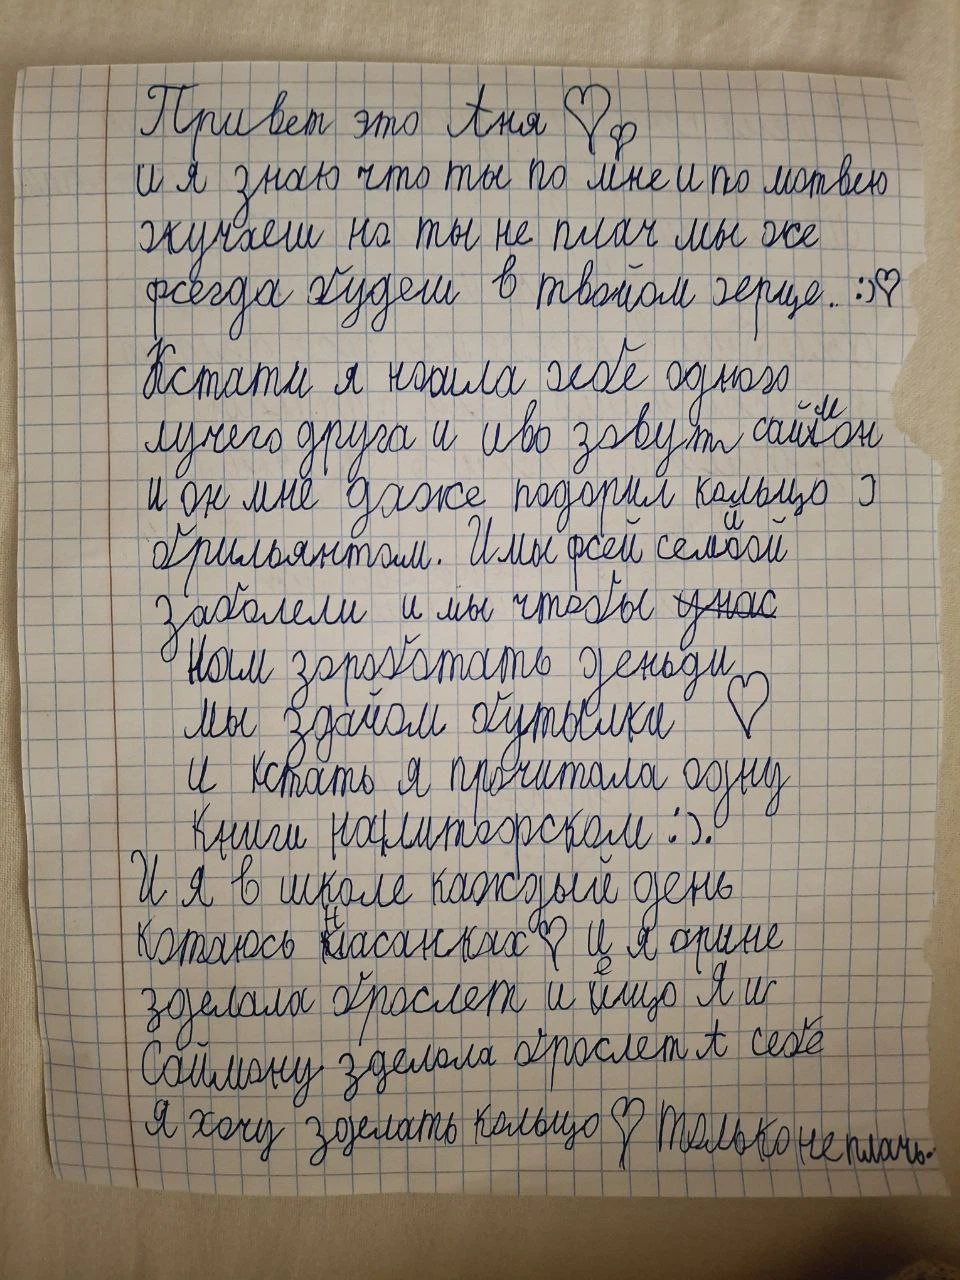 Привет это Аня
и я знаю что ты по мне и по мотвею
скучаеш но ты не плач мы же
фсегда будеш в твойом серце.. :)
Кстати я ношла себе одного
лучего друга и иво зовут саймон
и он мне даже подорил кольцо с
брильянтом. И мы фсей семьой
заболели и мы чтобы унас
Нам зоработать деньди
мы здайом бутылки
и кстать я прочитала одну
Книги на :).
И я в школе каждый день
котаюсь насанках и я орине
зделала брослет и ещо Я и
Саймону зделола брослет А себе
Я хочу зделать кольцо только не плачь.